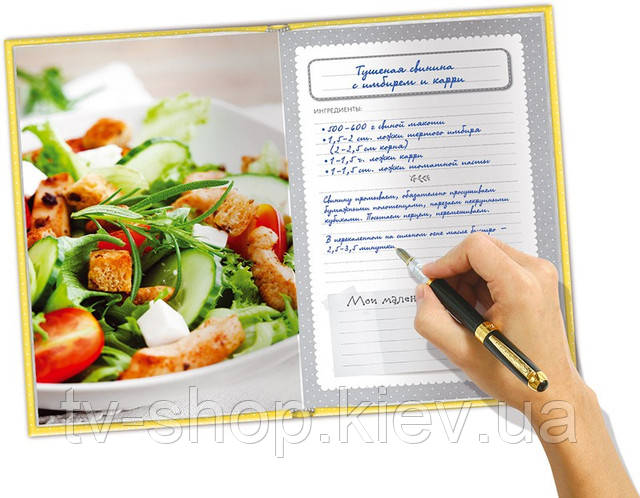 Тушеная свинина
с имбирем и карри
ИНГРЕДИЕНТЫ:
• 500–600 г свиной мякоти
• 1,5–2 ст. ложки тертого имбиря
(2–2,5 см корня)
• 1–1,5 ч. ложки карри
• 1–1,5 ст. ложки томатной пасты
Свинину промываем, обязательно просушиваем
бумажными полотенцами, нарезаем некрупными
кубиками. Посыпаем перцем, перемешиваем.
В перекаленном на сильном огне масле быстро –
2,5–3,5 минутки
Мои мален
tv-shop.kiev.ua